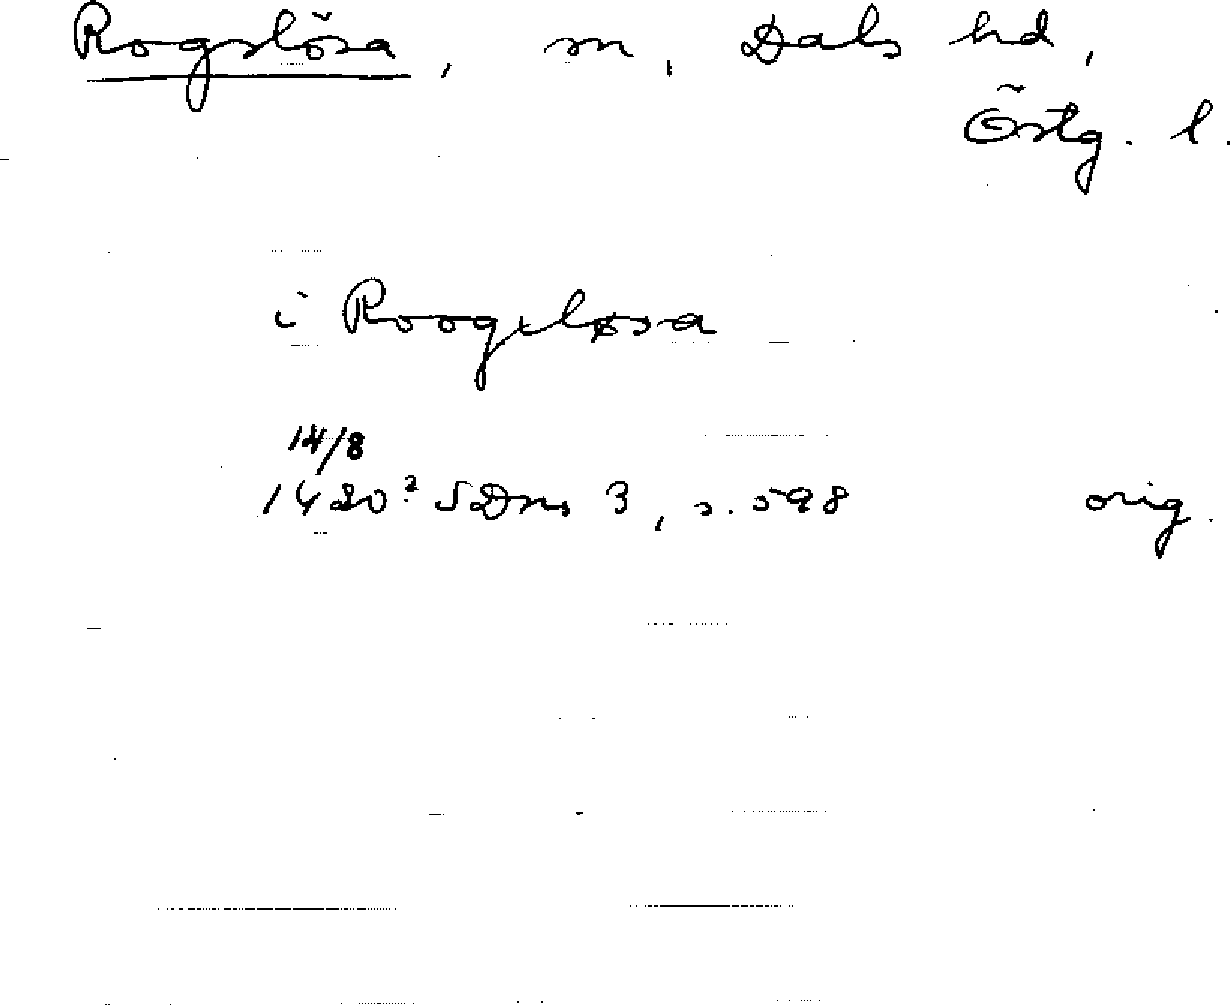 Rogslösa, sn, Dals hd,
Östg. l.
i Roogsløsa
14/8
1420? SDns 3, s. 598 orig.